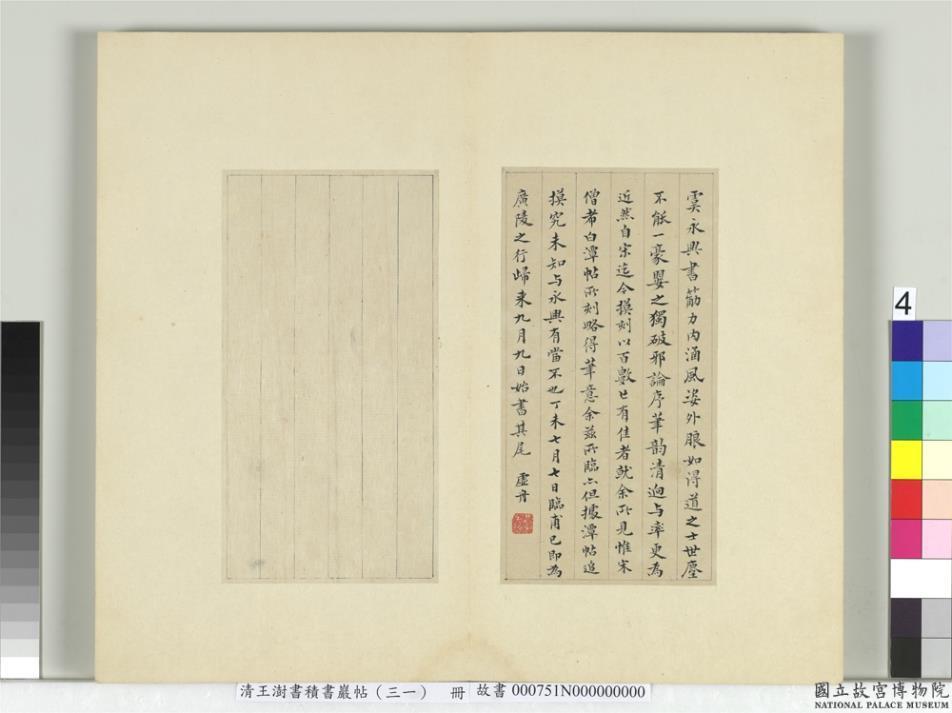 虞永興書筋力內涵風姿外朗如得道之士世塵
不能一豪嬰之獨破邪論序筆韵清逈与率更為
近然自宋迄今摸刻以百數尟有佳者就余所見惟宋
僧希白潭帖所刻略得筆意余茲所臨亦但據潭帖追
摸究未知与永興有當不也丁未七月七日臨甫已即為
廣陵之行歸来九月九日始書其尾 虛舟
4
清王澍書積書巖帖(三一) 冊 故書 000751N000000000
國立故宮博物院
NATIONAL PALACE MUSEUM